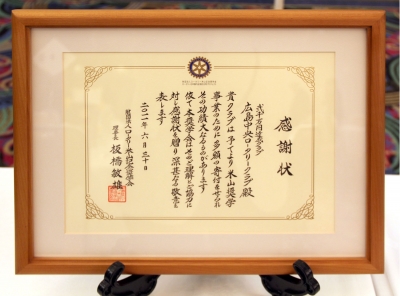 感謝状
広島中央ロータリークラブ殿
貴クラブは予てより米山奨学
事業のために多額の寄付をせられ
その功績大なるものがあります
依て本奨学会はそのご理解とご協力に
対し感謝状を贈り深甚なる敬意を
表します
二〇一一年六月三十日
財団法人ロータリー米山記念奨学会
理事長 板橋敏雄